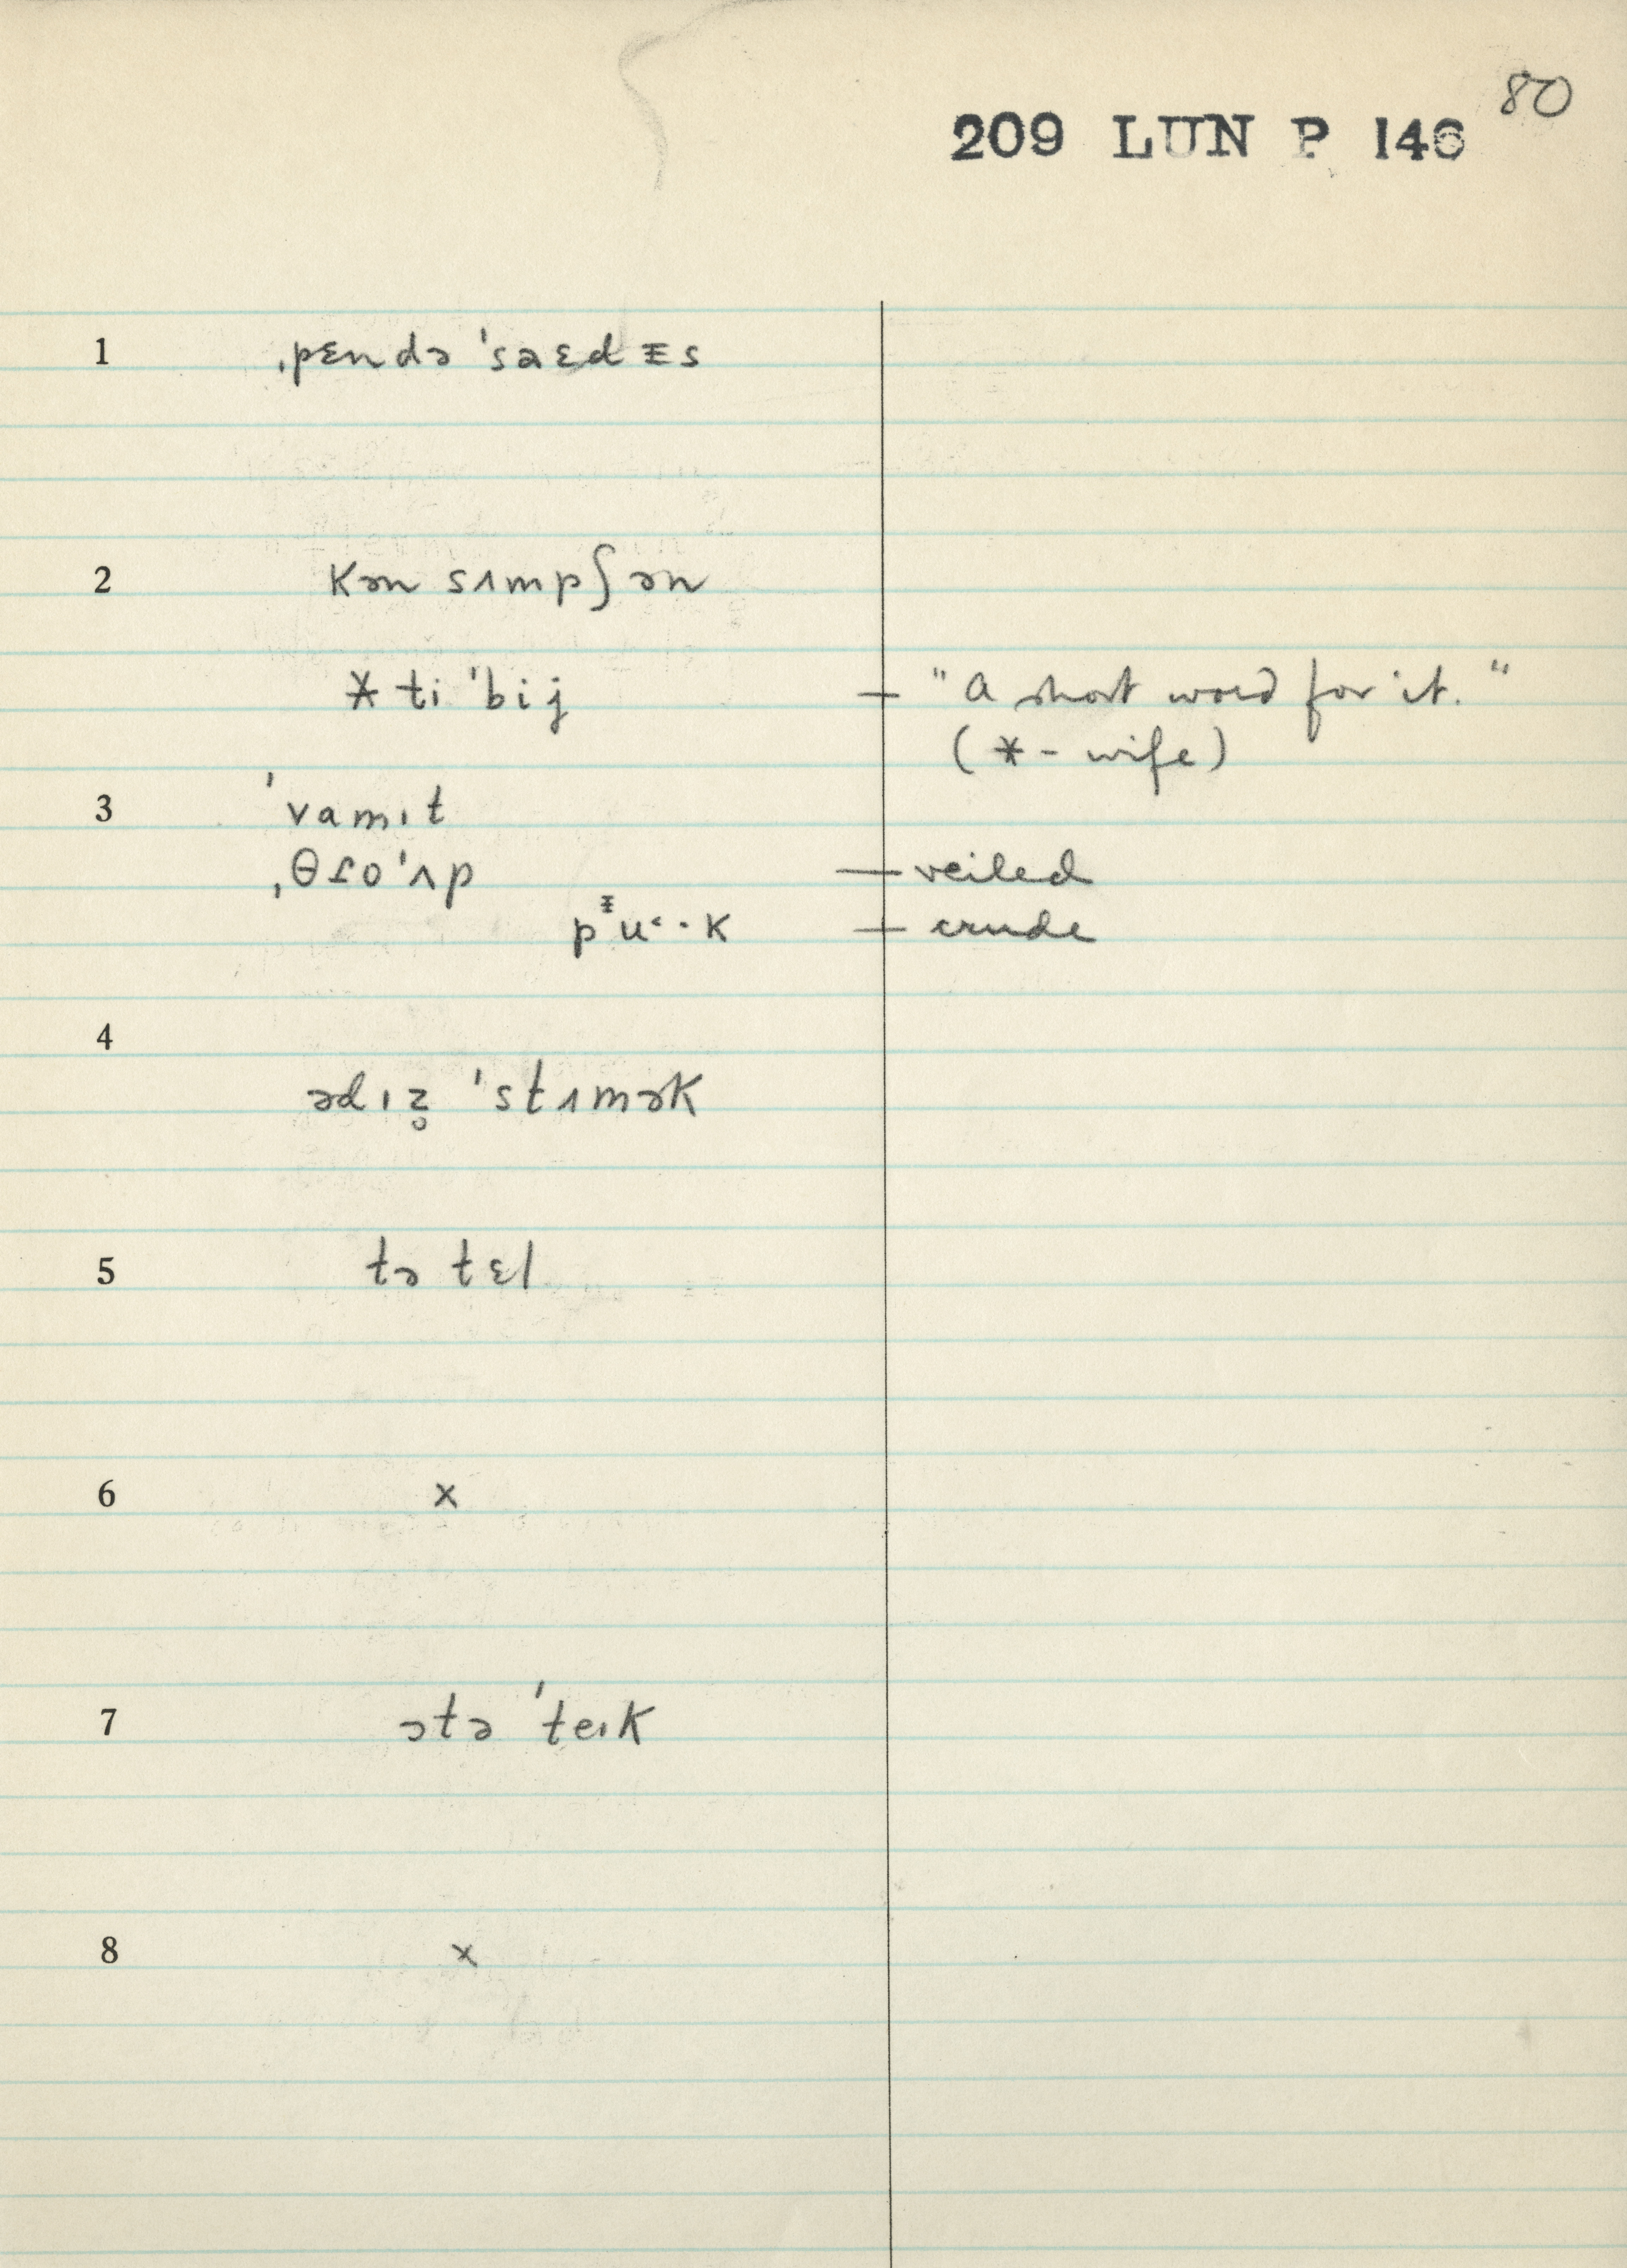 80
209 LUN P 146
1 ˌpɛndə ˈsaɛdᵻs
2 kən sɪmpʃən
* ti ˈbij — "A short word for it."
(* - wife)
3 ˈvamɪt
ˌθɾoˈʌp — veiled
pᵻu˂·k — crude
4 ədɪz̥ ˈstʌmək
5 tə tɛl
6 x
7 ətə ˈteɪk
8 x